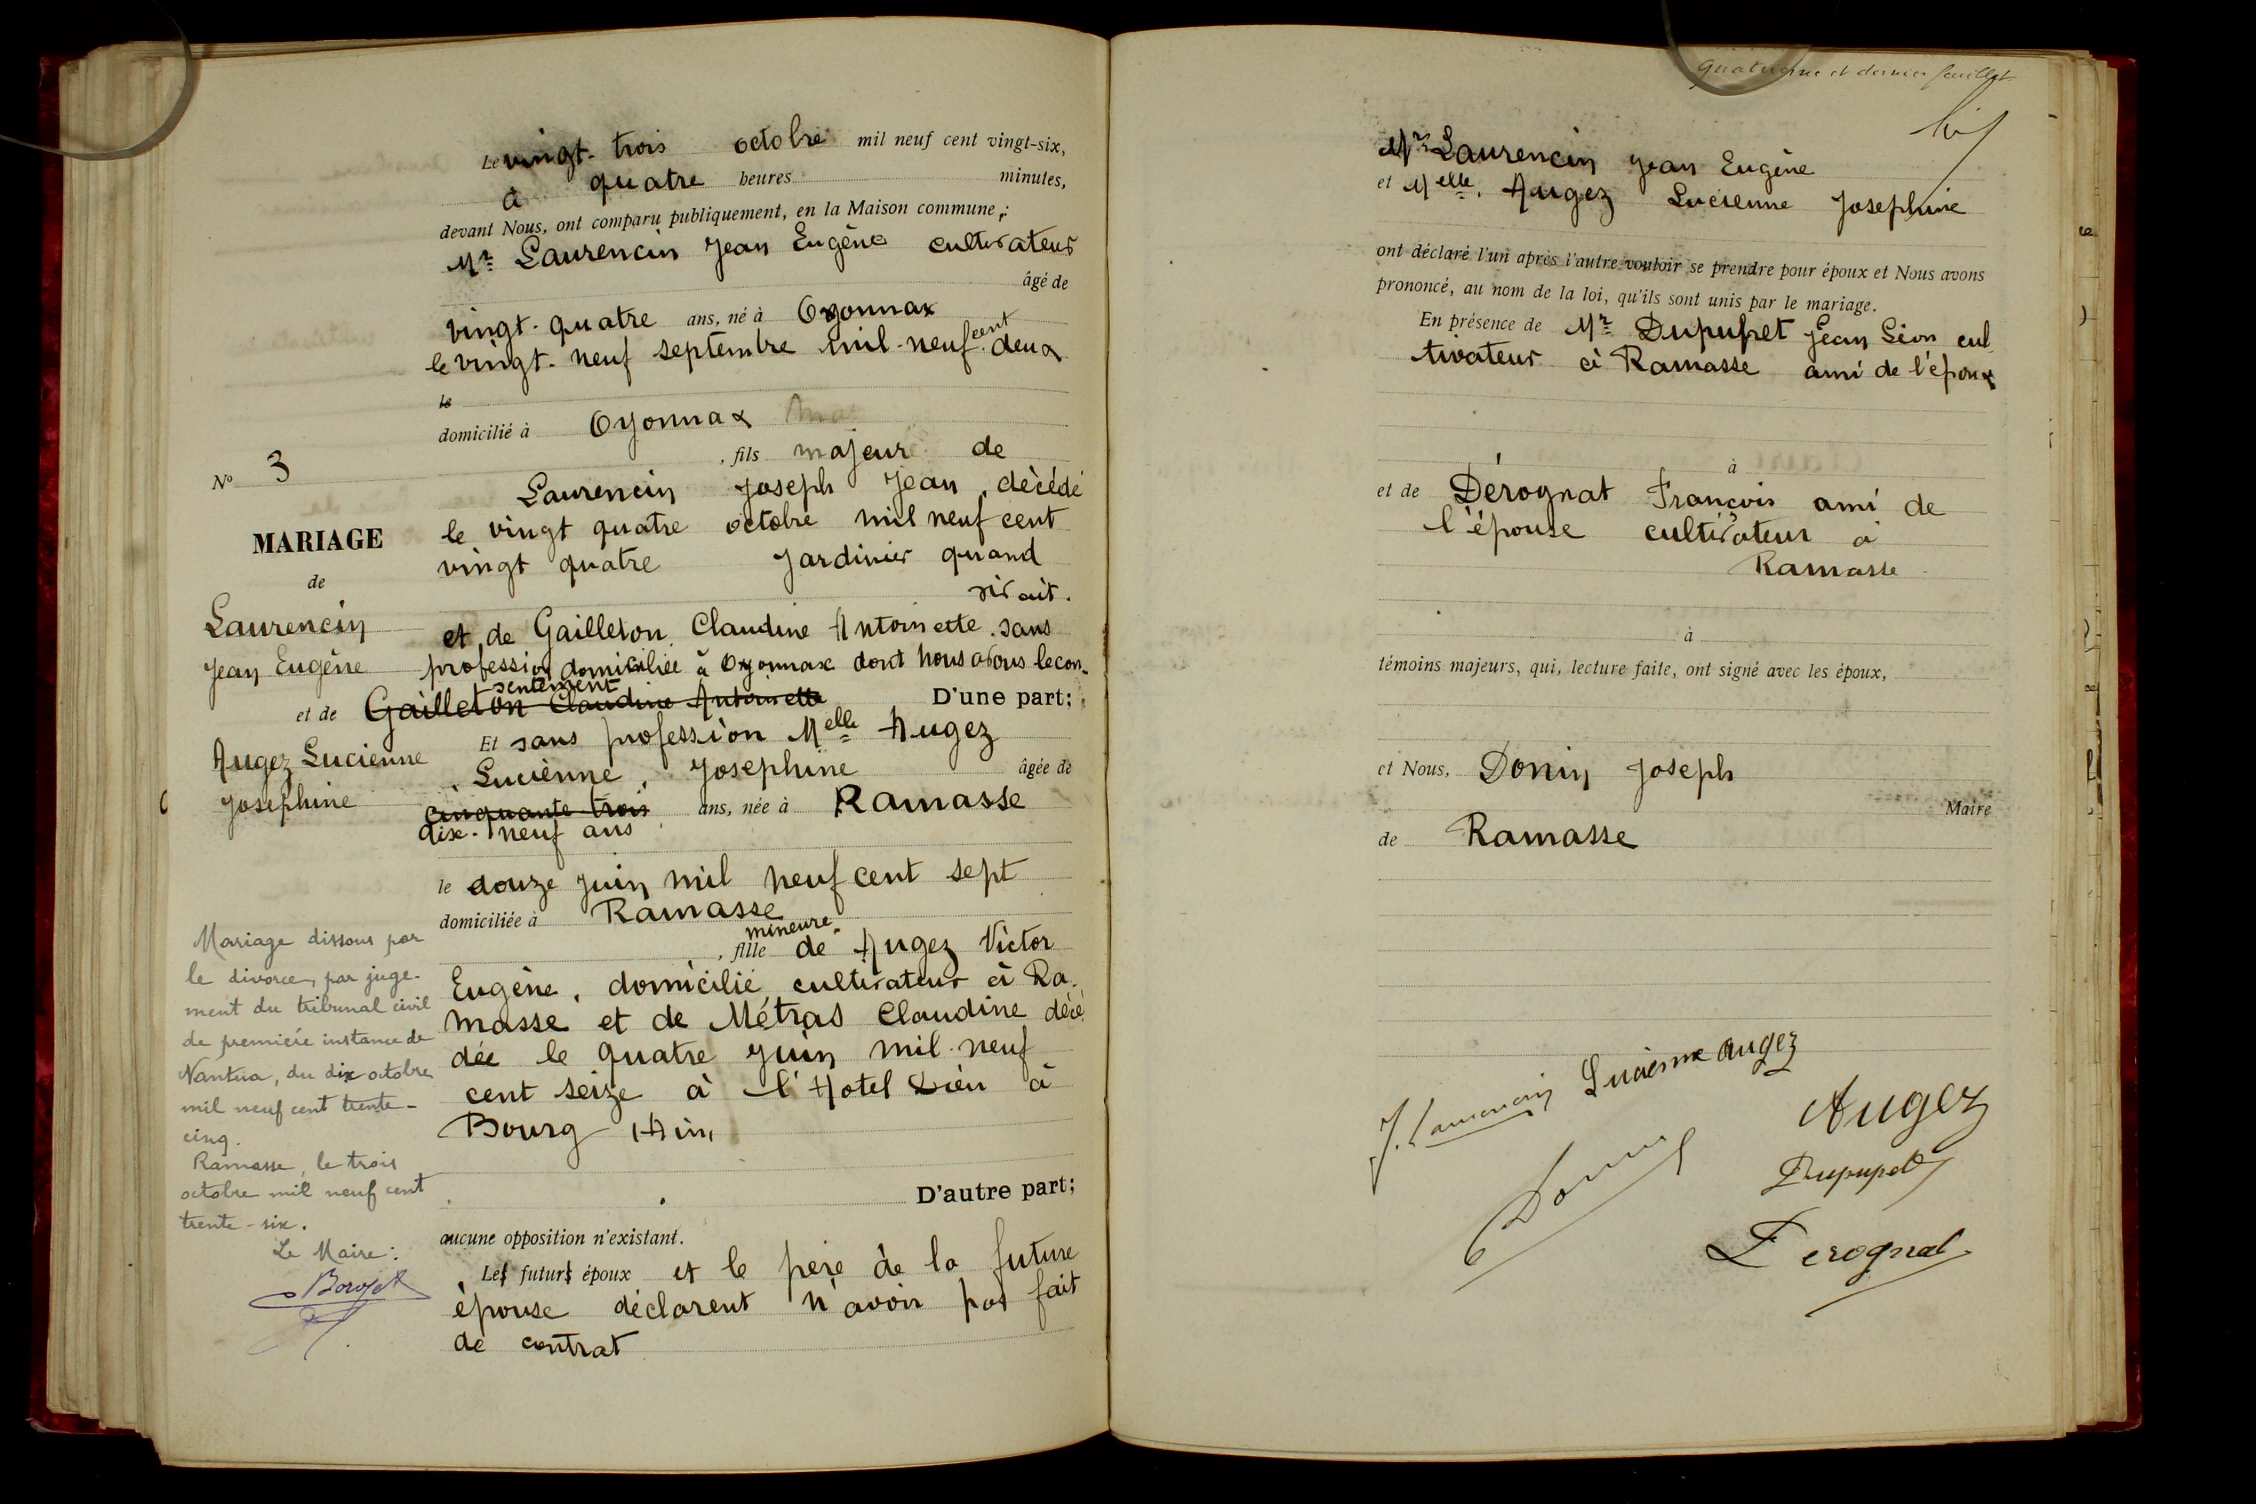 Le vingt-trois octobre mil neuf cent vingt-six,
à quatre heures minutes,
devant Nous, ont comparu publiquement, en la Maison commune,:
Mr Laurencin Jean Eugène cultivateur
âgé de
vingt-quatre ans, né à Oyonnax
le vingt-neuf septembre mil-neuf cent deux
le
domicilié à Oyonnax
, fils majeur de
Laurencin Joseph Jean, décédé
le vingt quatre octobre mil neuf cent
vingt quatre Jardinier quand
vivait.
et de Gailleton Claudine Antoinette. sans
profession domiciliée à Oyonnax dont nous avons le con-
sentement
Gailleton Claudine Antoinette D'une part;
Et sans profession Melle Augez
Lucienne, Josephine âgée de
cinquante trois ans, née à Ramasse
dix-neuf ans
le douze Juin mil neuf cent sept
domiciliée à Ramasse
mineure
, fille de Augez Victor
Eugène, domicilié cultivateur à Ra-
masse et de Métras Claudine décé
dée le quatre Juin mil-neuf
cent seize à l'Hotel Dieu à
Bourg (Ain)
D'autre part;
aucune opposition n'existant.
Les futurs époux et le père de la future
épouse déclarent n'avoir pas fait
de contrat
No 3
MARIAGE
de
Laurencin
Jean Eugène
et de
Augez Lucienne
Josephine
Mariage dissous par
le divorce, par juge-
ment du tribunal civil
de première instance de
Nantua, du dix octobre
mil neuf cent trente-
cinq.
Ramasse, le trois
octobre mil neuf cent
trente-six.
Le Maire:
Quatrième et dernier feuillet
Mr Laurencin Jean Eugène
et Melle. Augez Lucienne Josephine
ont déclaré l'un après l'autre vouloir se prendre pour époux et Nous avons
prononcé, au nom de la loi, qu'ils sont unis par le mariage.
En présence de Mr Dupupet Jean Léon cul
tivateur à Ramasse ami de l'époux
à
et de Dérognat François ami de
l'épouse cultivateur à
Ramasse
à
témoins majeurs, qui, lecture faite, ont signé avec les époux,
et Nous, Donin Joseph
Maire
de Ramasse
J. Laurencin Lucienne Augez
Augez
Donin
Dupupet
Derognat